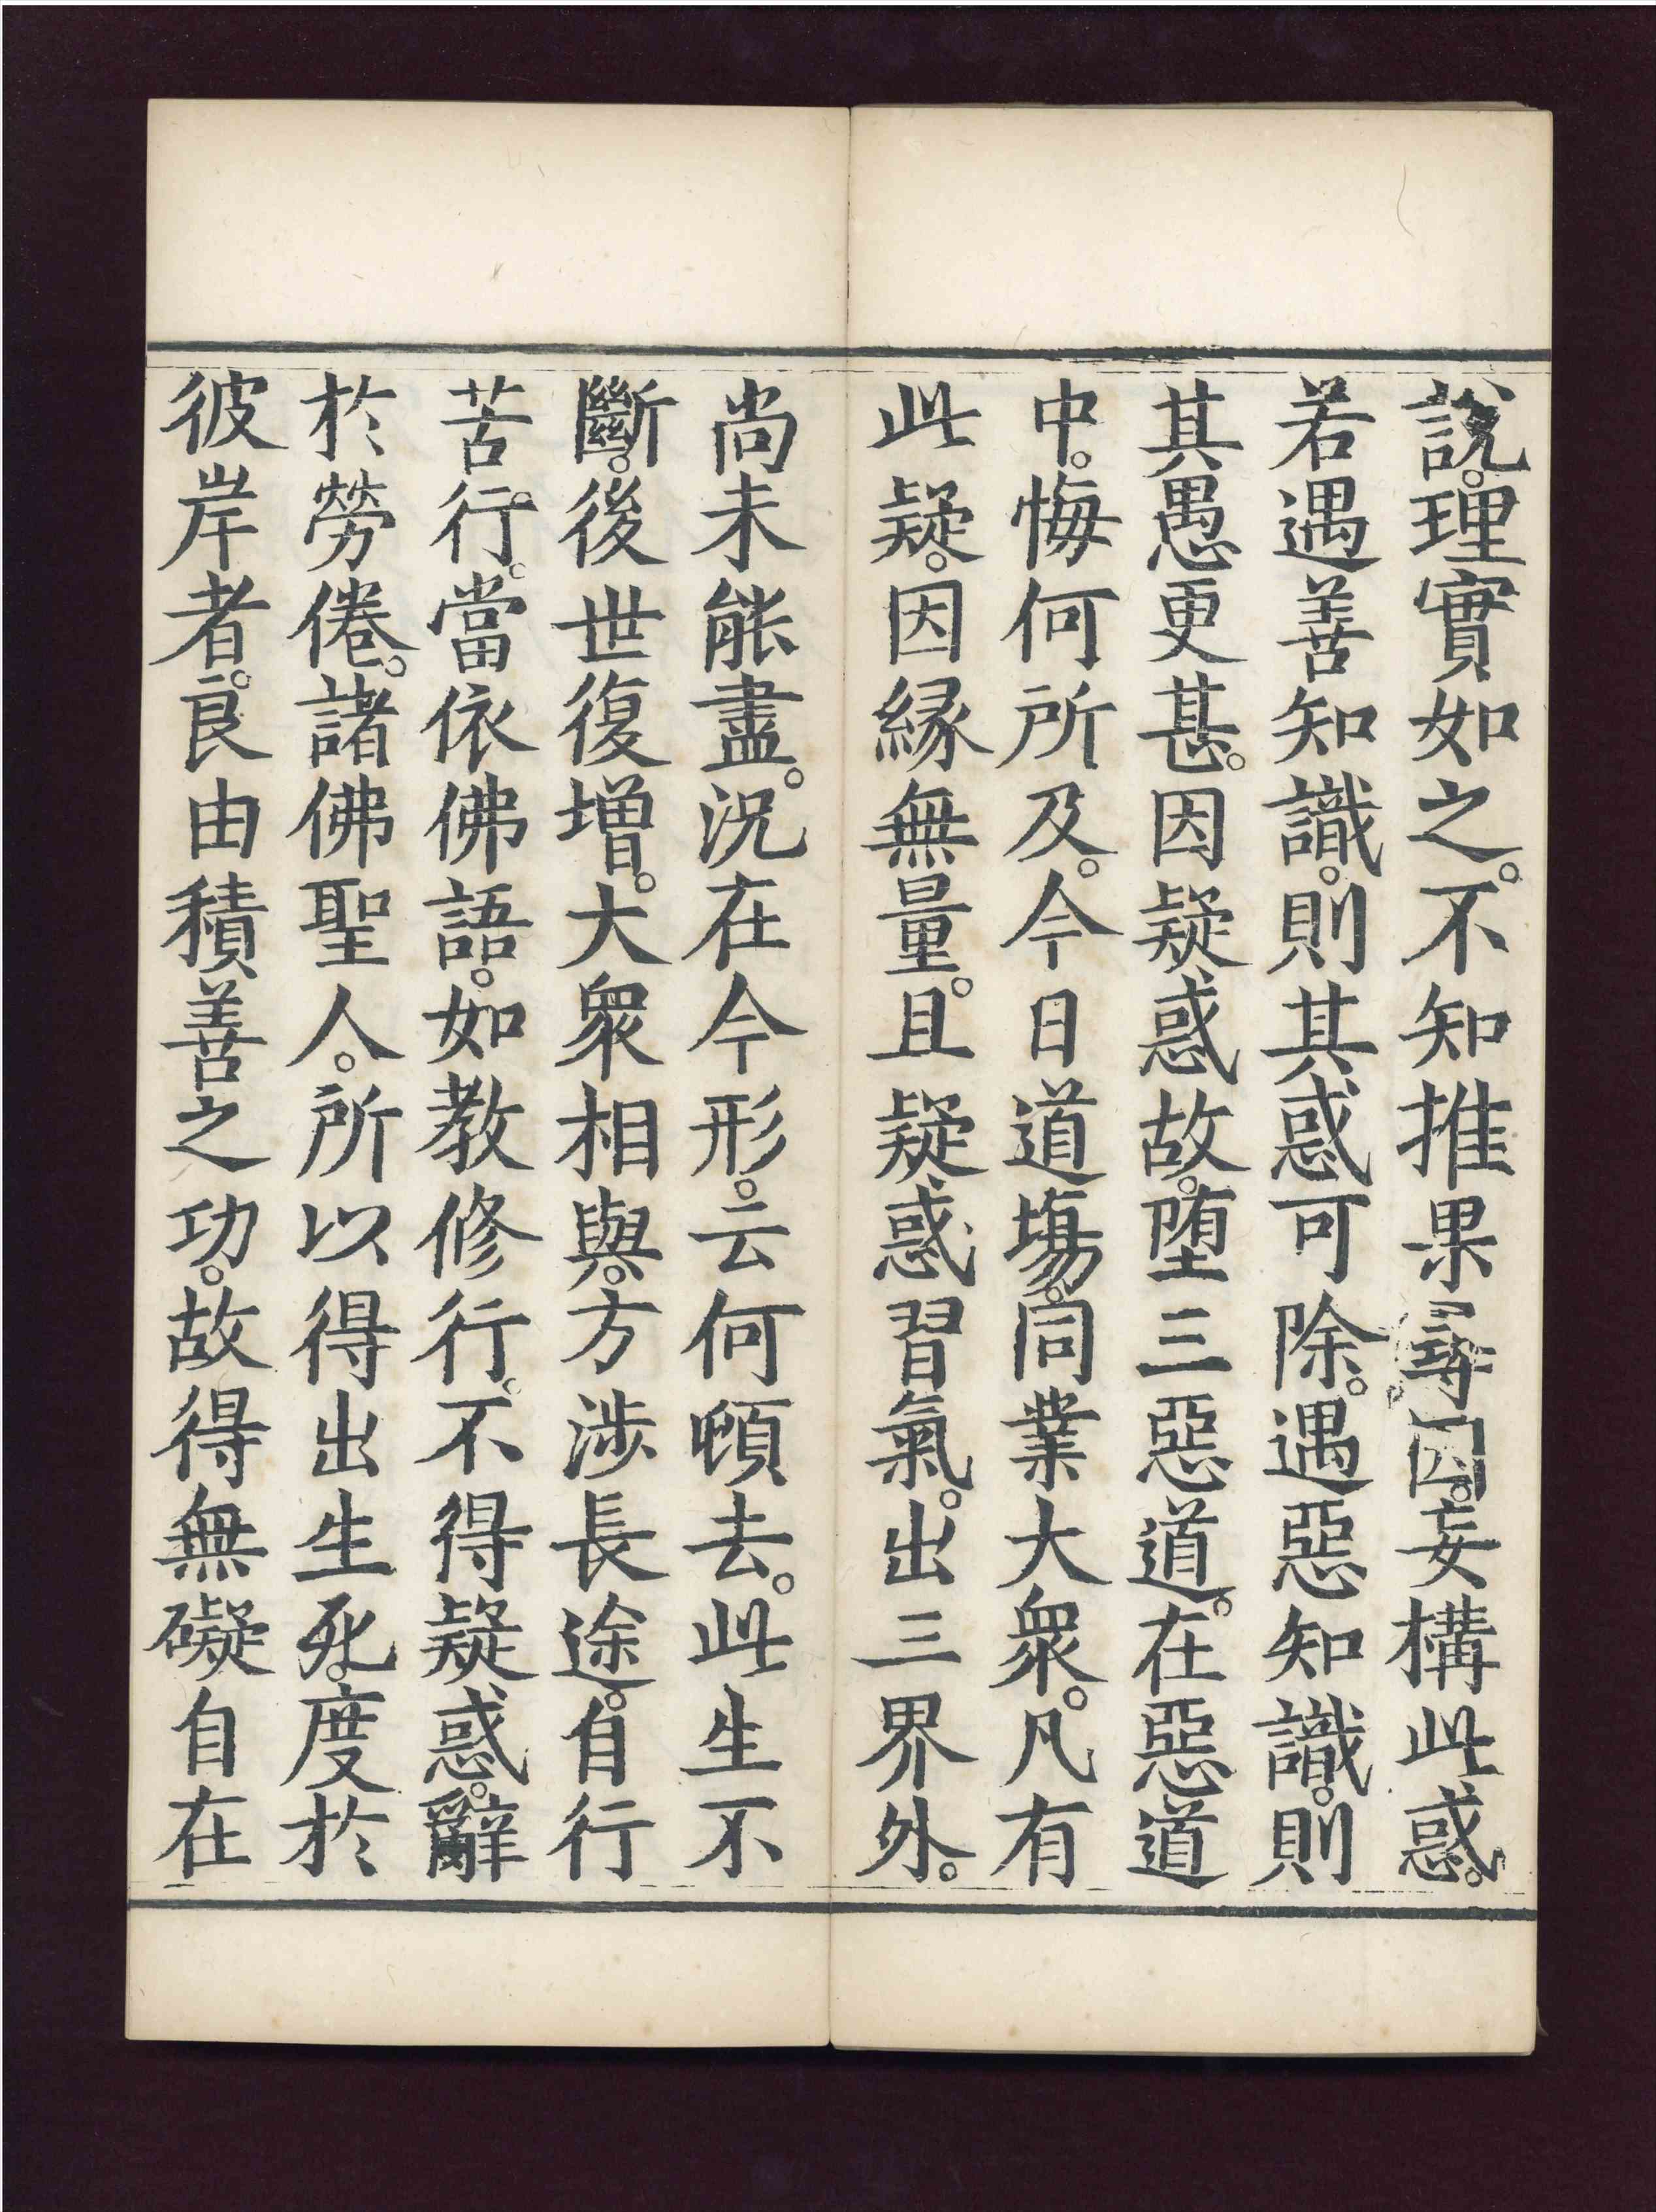 說。理實如之。不知推果尋因。妄構此惑。
若遇善知識。則其惑可除。遇惡知識。則
其愚更甚。因疑惑故。墮三惡道。在惡道
中。悔何所及。今日道場。同業大衆。凡有
此疑。因緣無量。且疑惑習氣。出三界外。
尚未能盡。況在今形。云何頓去。此生不
斷。後世復增。大衆相與。方涉長途。自行
苦行。當依佛語。如教修行。不得疑惑。辭
於勞倦。諸佛聖人。所以得出生死。度於
彼岸者。良由積善之功。故得無礙自在